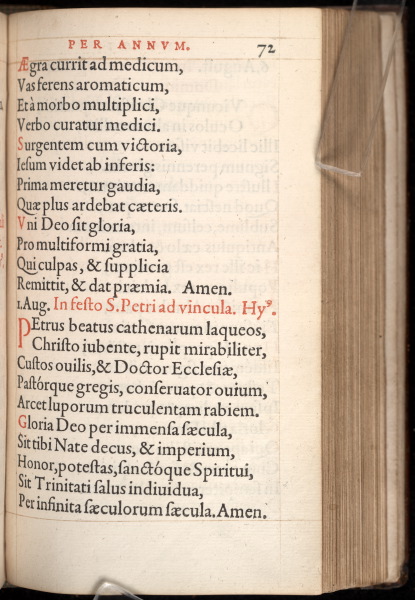 PER ANNVM. 72
Ægra currit ad medicum,
Vas ferens aromaticum,
Et à morbo multiplici,
Verbo curatur medici.
Surgentem cum victoria,
Iesum videt ab inferis:
Prima meretur gaudia,
Quæ plus ardebat cæteris.
Vni Deo sit gloria,
Pro multiformi gratia,
Qui culpas, & supplicia
Remittit, & dat præmia. Amen.
1. Aug. In festo S. Petri ad vincula. Hyꝰ.
PEtrus beatus cathenarum laqueos,
Christo iubente, rupit mirabiliter,
Custos ouilis, & Doctor Ecclesiæ,
Pastórque gregis, conseruator ouium,
Arcet luporum truculentam rabiem.
Gloria Deo per immensa sæcula,
Sit tibi Nate decus, & imperium,
Honor, potestas, sanctóque Spiritui,
Sit Trinitati salus indiuidua,
Per infinita sæculorum sæcula. Amen.